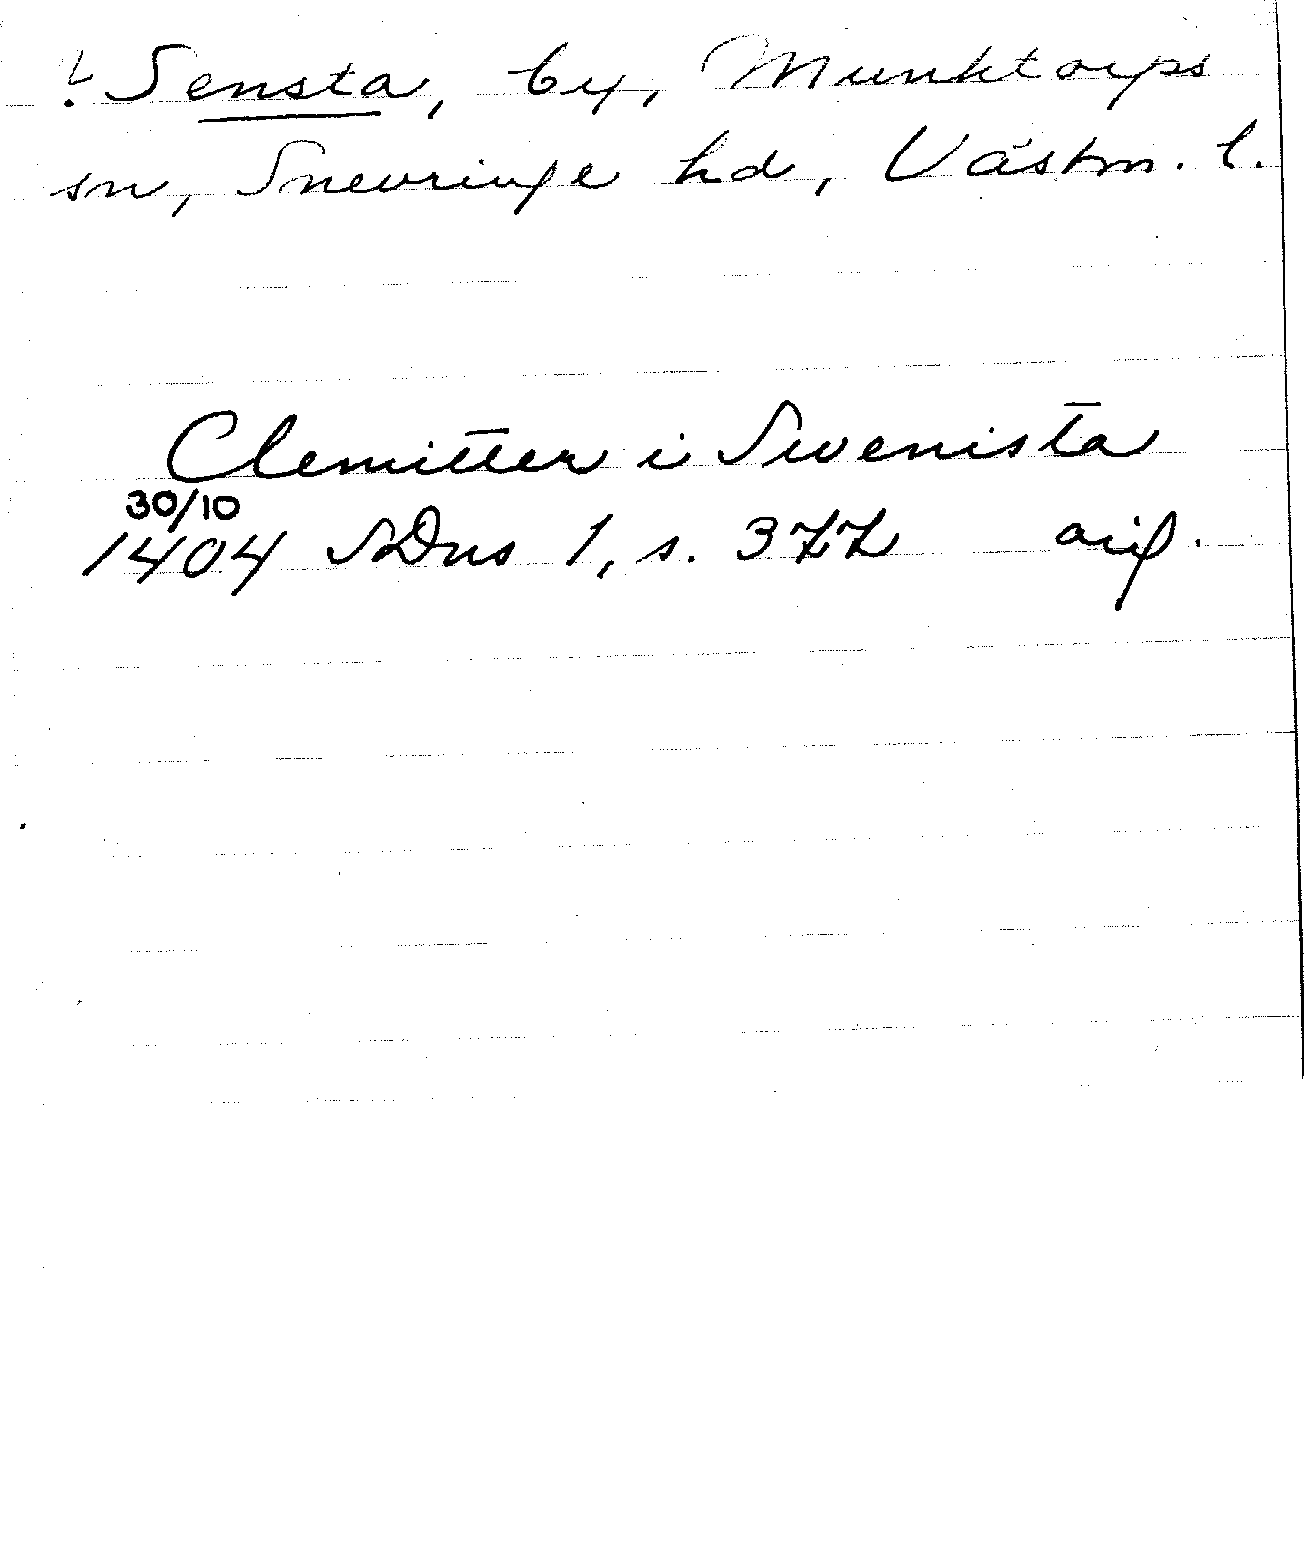 ? Sensta, by, Munktorps
sn, Snevringe hd, Västm. l.
Clemitt̄er i Swenistā
30/10
1404 SDns 1, s. 377 orig.